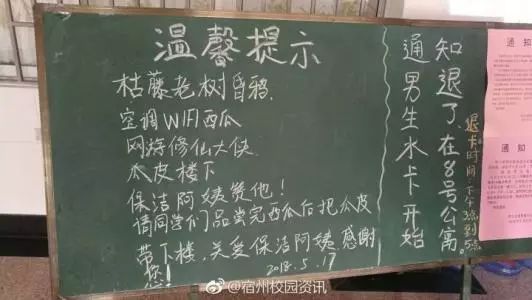 温馨提示
枯藤老树昏鸦
空调WIFI西瓜
网游修仙大侠
瓜皮楼下
保洁阿姨赞他!
请同学们品尝完西瓜后把瓜皮
带下楼,关爱保洁阿姨,感谢
您!
2018.5.17
通知
男生水卡开始
退了,在8号公寓
退卡时间:下午
3点到5点
通知
通知
@宿州校园资讯